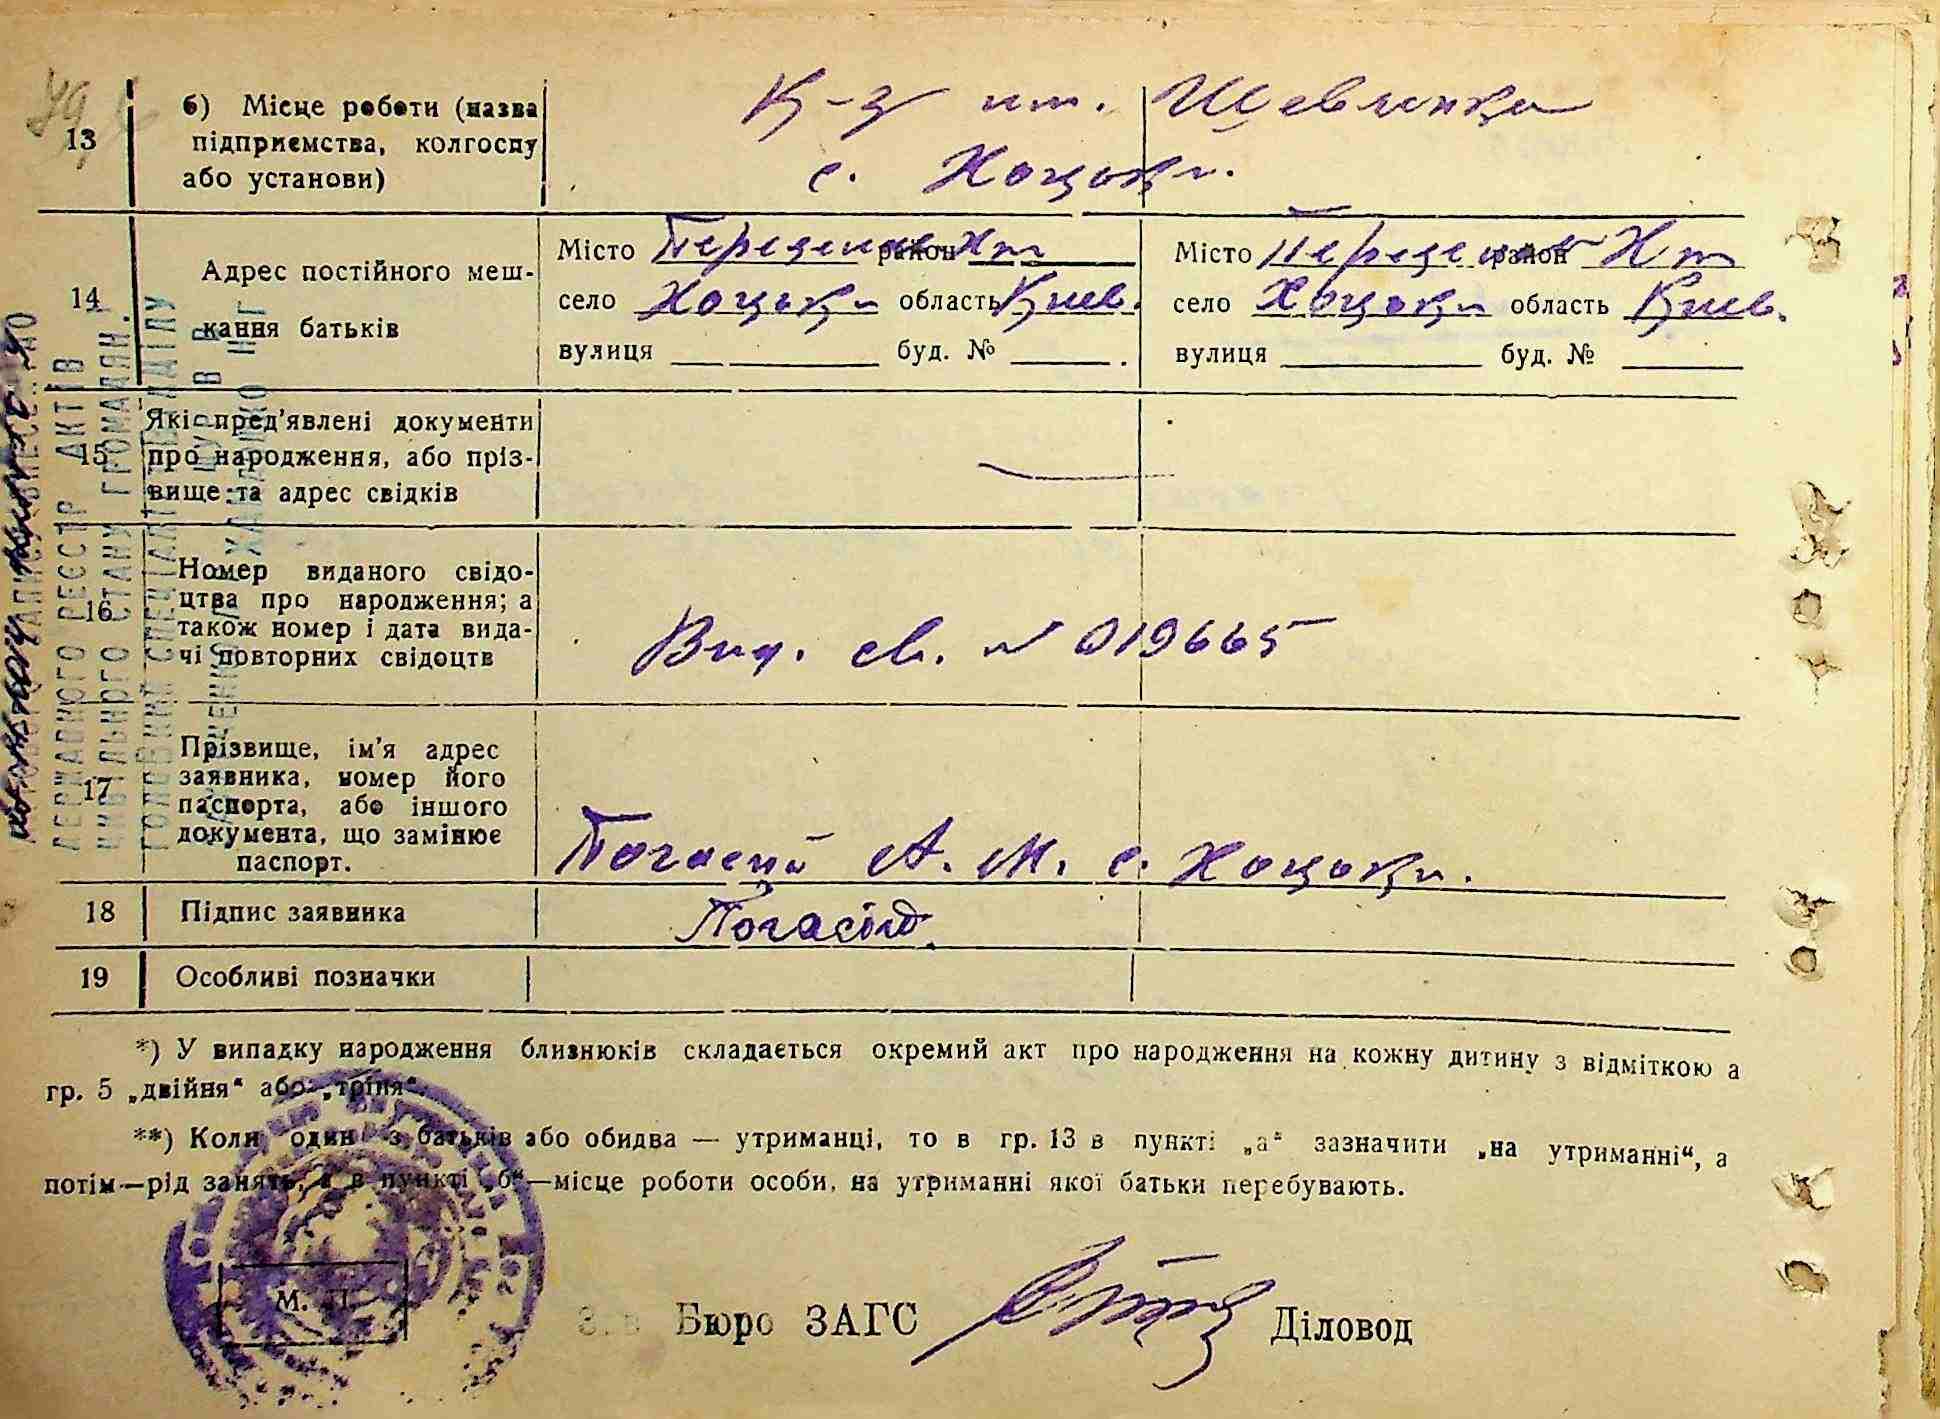 13 б) Місце роботи (назва К-з им. Шевченка
підприємства, колгоспу
або установи) с. Хоцьки.
14 Адрес постійного меш-
кання батьків
Місто район Місто район
село Хоцьки область Киев. село Хоцьки область Киев.
вулиця буд. № вулиця буд. №
15 Які пред'явлені документи
про народження, або пріз-
вище та адрес свідків
16 Номер виданого свідо-
цтва про народження; а
також номер і дата вида-
чі повторних свідоцтв
Вид. св. № 019665
17 Прізвище, ім'я адрес
заявника, номер його
паспорта, або іншого
документа, що замінює
паспорт.
Погасий А. М. с. Хоцьки.
18 Підпис заявника
19 Особливі позначки
*) У випадку народження близнюків складається окремий акт про народження на кожну дитину з відміткою а
гр. 5 „двійня“ або „трійня“
**) Коли один з батьків або обидва — утриманці, то в гр. 13 в пункті „а“ зазначити „на утриманні“, а
потім—рід занять, а в пункті „б“—місце роботи особи, на утриманні якої батьки перебувають.
М. П.
Зав Бюро ЗАГС Діловод
ДЕРЖАВНОГО РЕЄСТР АКТІВ
ЦИВІЛЬНОГО СТАНУ ГРОМАДЯН.
ГОЛОВНИЙ СПЕЦІАЛІСТ